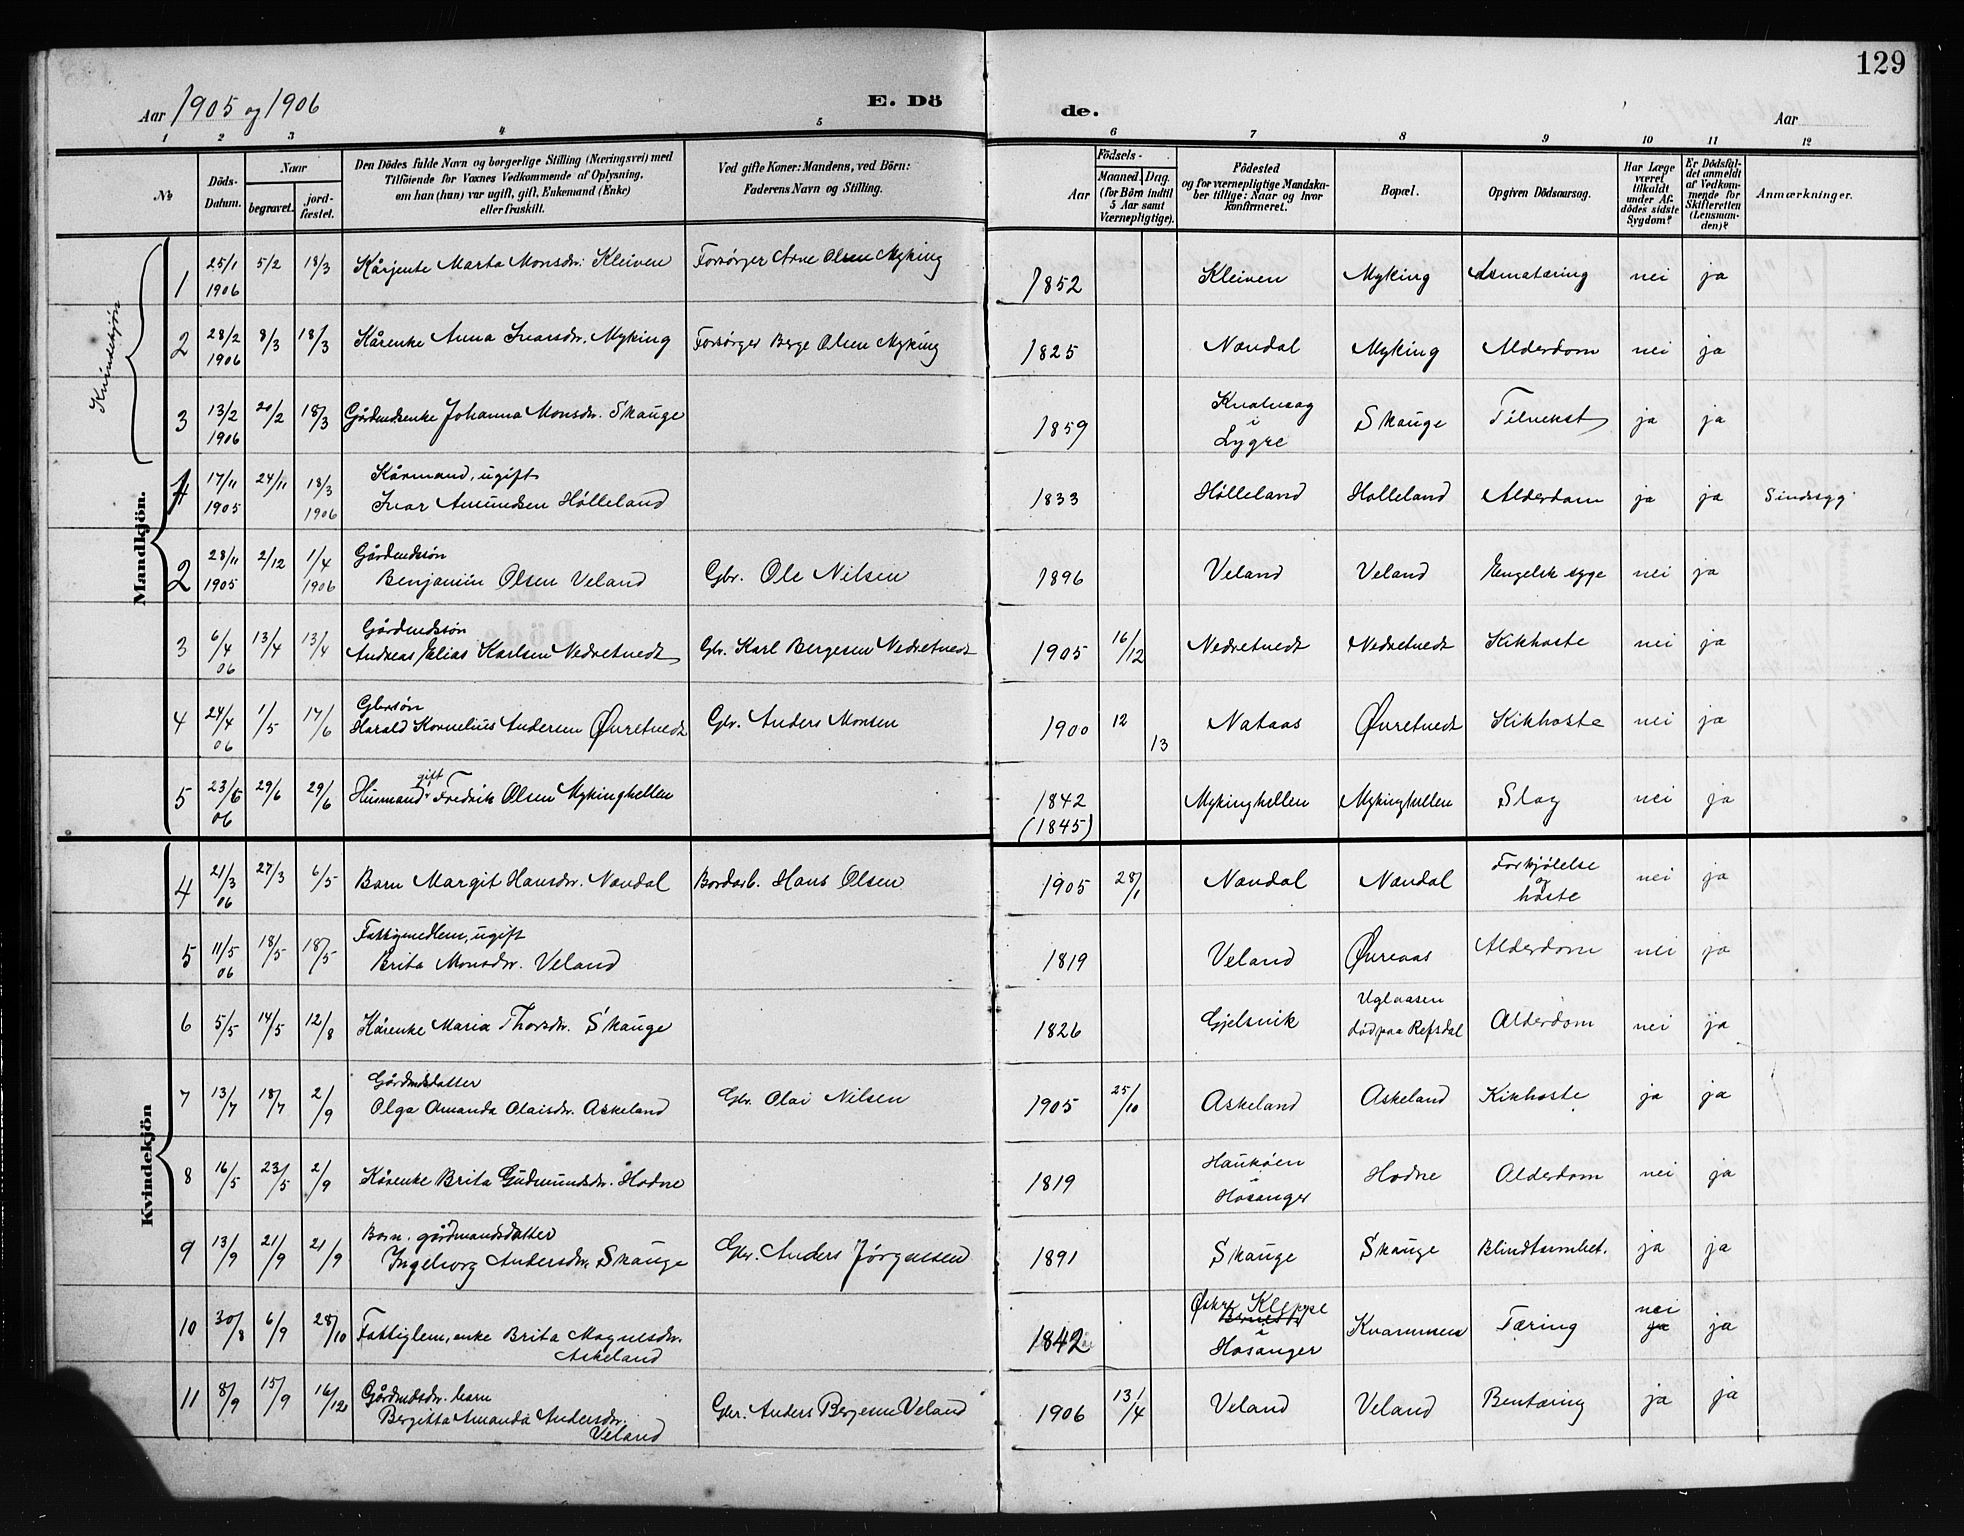 129
Aar 1905 og 1906
E. Dö de.
Aar
1 2 3 4 5 6 7 8 9 10 11 12
No
Döds-Datum.
Naar
begravet.
jord-fæstet.
Den Dödes fulde Navn og borgerlige Stilling (Næringsvei) med
Tilföiende for Voxnes Vedkommende af Oplysning,
om han (hun) var ugift, gift, Enkemand (Enke)
eller fraskilt.
Ved gifte Koner: Mandens, ved Börn:
Faderens Navn og Stilling.
Födsels-
Aar
Maaned. Dag.
(for Börn indtil
5 Aar samt
Værnepligtige).
Födested
og for værnepligtige Mandska-
ber tillige: Naar og hvor
konfirmeret.
Bopæl.
Opgiven Dödsaarsag.
Har Læge
været
tilkaldt
under Af-
dödes sidste
Sygdom?
Er Dödsfal-
det anmeldt
af Vedkom-
mende for
Skifteretten
(Lensman-
den)?
Anmærkninger.
Kvindekjön
1 25/1 1906 5/2 18/3 Kårjente Marta Monsdr. Kleiven Forsörger Arne Olsen Myking 1852 Kleiven Myking nei ja
2 28/2 1906 8/3 18/3 Kårenke Anna Ivarsdr. Myking Forsörger Berge Olsen Myking 1825 Nandal Myking Alderdom nei ja
3 13/2 1906 20/2 18/3 Gårdmdsenke Johanna Monsdr. Skauge 1859 Kvalvaag i Lygre Skauge ja ja
Mandkjön.
1 17/11 1905 24/11 18/3 1906 Kårmand, ugift
Ivar Amundsen Hølleland 1833 Hølleland Hølleland Alderdom ja ja Sindssyg
2 28/11 1905 2/12 1/4 1906 Gårdmdssön
Benjamin Olsen Veland Gbr. Ole Nilsen 1896 Veland Veland Engelsk syge nei ja
3 6/4 06 13/4 13/4 Gårdmdssøn
Andreas Elias Karlsen Nedretvedt Gbr. Karl Bergesen Nedretvedt 1905 16/12 Nedretvedt Nedretvedt Kikhoste nei ja
4 24/4 06 1/5 17/6 Gbrsøn
Harald Kornelius Andersen Øvretvedt Gbr. Anders Monsen 1900 12 13 Nataas Øvretvedt Kikhoste nei ja
5 23/6 06 29/6 29/6 Husmand, gift Fredrik Olsen Mykinghellen 1842 (1845) Mykinghellen Mykinghellen Slag nei ja
Kvindekjön
4 21/3 06 27/3 6/5 Barn Margit Hansdr. Nandal Bordarb. Hans Olsen 1905 28/1 Nandal Nandal Forkjölelse og hoste nei ja
5 11/5 06 18/5 18/5 Fattigmedlem, ugift
Brita Monsdr. Veland 1819 Veland Øvreaas Alderdom nei ja
6 5/5 14/5 12/8 Kårenke Maria Thorsdr. Skauge 1826 Gjelsvik Uglaasen död paa Refsdal Alderdom nei ja
7 13/7 18/7 2/9 Gårdmdsdatter
Olga Amanda Olaisdr. Askeland Gbr. Olai Nilsen 1905 25/10 Askeland Askeland Kikhoste ja ja
8 16/5 23/5 2/9 Kårenke Brita Gudmundsdr. Hodne 1819 Haukøen i Hosanger Hodne Alderdom nei ja
9 13/9 21/9 21/9 Barn. gårdmandsdatter
Ingeborg Andersdr. Skauge Gbr. Anders Jörgensen 1891 Skauge Skauge Blindtarmbet. ja ja
10 30/8 6/9 28/10 Fattiglem, enke Brita Magnesdr. Askeland 1842 Kleppe i Hosanger Kvammen Tæring nei ja ja
11 8/9 15/9 16/12 Gårdmdsdr. barn
Bergitta Amanda Andersdr. Veland Gbr. Anders Bergesen Veland 1906 13/4 Veland Veland Bentæring ja ja